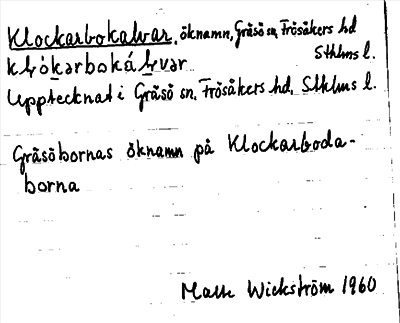 Klockarbokalvar, öknamn, Gräsö sn, Frösåkers hd
Sthlms l.
klo̱karboká̱lvar
Upptecknat i Gräsö sn, Frösåkers hd, Sthlms l.
Gräsöbornas öknamn på Klockarboda-
borna
Wickström 1960